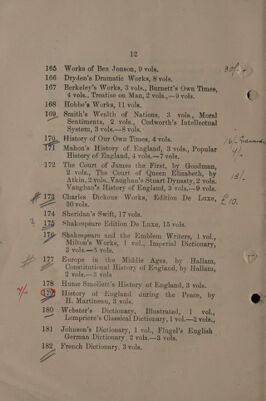 12
165 Works of Ben Jonson, 9 vols.
166 Dryden's Dramatic Works, 8 vols.
167 Berkeley's Works, 3 vols., Burnett's Own Times,
4 vols., Treatise on Man, 2 vols.,—9 vols.
168 Hobbe's Works, 11 vols.
169 Smith's Wealth of Nations, 3 vols., Moral
Sentiments, 2 vols., Cudworth's Intellectual
System, 3 vols.—8 vols.
170 History of Our Own Times, 4 vols.
171 Mahon's History of England, 3 vols., Popular
History of England, 4 vols.—7 vols.
172 The Court of James the First, by Goodman,
2 vols., The Court of Queen Elizabeth, by
Atkin, 2 vols., Vaughan's Stuart Dynasty, 2 vols.
Vaughan's History of England, 3 vols.—9 vols.
173 Charles Dickens Works, Edition De Luxe,
30 vols.
£10.
174 Sheridan's Swift, 17 vols.
175 Shakespeare Edition De Luxe, 15 vols.
176 Shakespeare and the Emblem Writers, 1 vol.,
Milton's Works, 1 vol., Imperial Dictionary,
3 vols.—5 vols.
177 Europe in the Middle Ages, by Hallam,
Constitutional History of England, by Hallam,
2 vols.—3 vols
178 Hume Smollett's History of England, 3 vols.
179 History of England during the Peace, by
H. Martineau, 3 vols.
180 Webster's Dictionary, Illustrated, 1 vol.,
Lempriere's Classical Dictionary, 1 vol.—2 vols.,
181 Johnson's Dictionary, 1 vol., Flugel's English
German Dictionary, 2 vols.—3 vols.
182 French Dictionary, 3 vols.